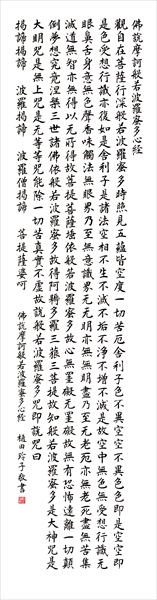 佛説摩訶般若波羅蜜多心経
觀自在菩薩行深般若波羅蜜多時照見五蘊皆空度一切苦厄舎利子色不異空空不異色色即是空空即
是色受想行識亦復如是舎利子是諸法空相不生不滅不垢不浄不増不減是故空中無色無受想行識無
眼耳鼻舌身意無色聲香味觸法無眼界乃至無意識界無無明亦無無明盡乃至無老死亦無老死盡無苦集
滅道無智亦無得以無所得故菩提薩埵依般若波羅蜜多故心無罣礙無罣礙故無有恐怖遠離一切顛
倒夢想究竟涅槃三世諸佛依般若波羅蜜多故得阿耨多羅三藐三菩提故知般若波羅蜜多是大神咒是
大明咒是無上咒是無等等咒能除一切苦真實不虚故説般若波羅蜜多咒即説咒曰
揭諦揭諦 波羅揭諦 波羅僧揭諦 菩提薩婆呵 佛説摩訶般若波羅蜜多心経 植田玲子敬書